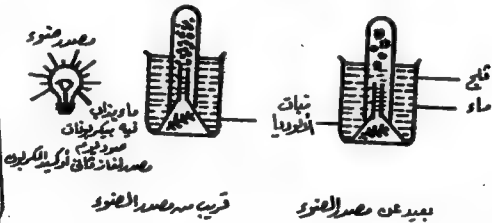 مصدر ضوء
ماء يذاب
فيه بيكربونات
صوديوم
مصدر لغاز ثاني أوكسيد الكربون
نبات
الألوديا
ثلج
ماء
قريب من مصدر الضوء
بعيد عن مصدر الضوء